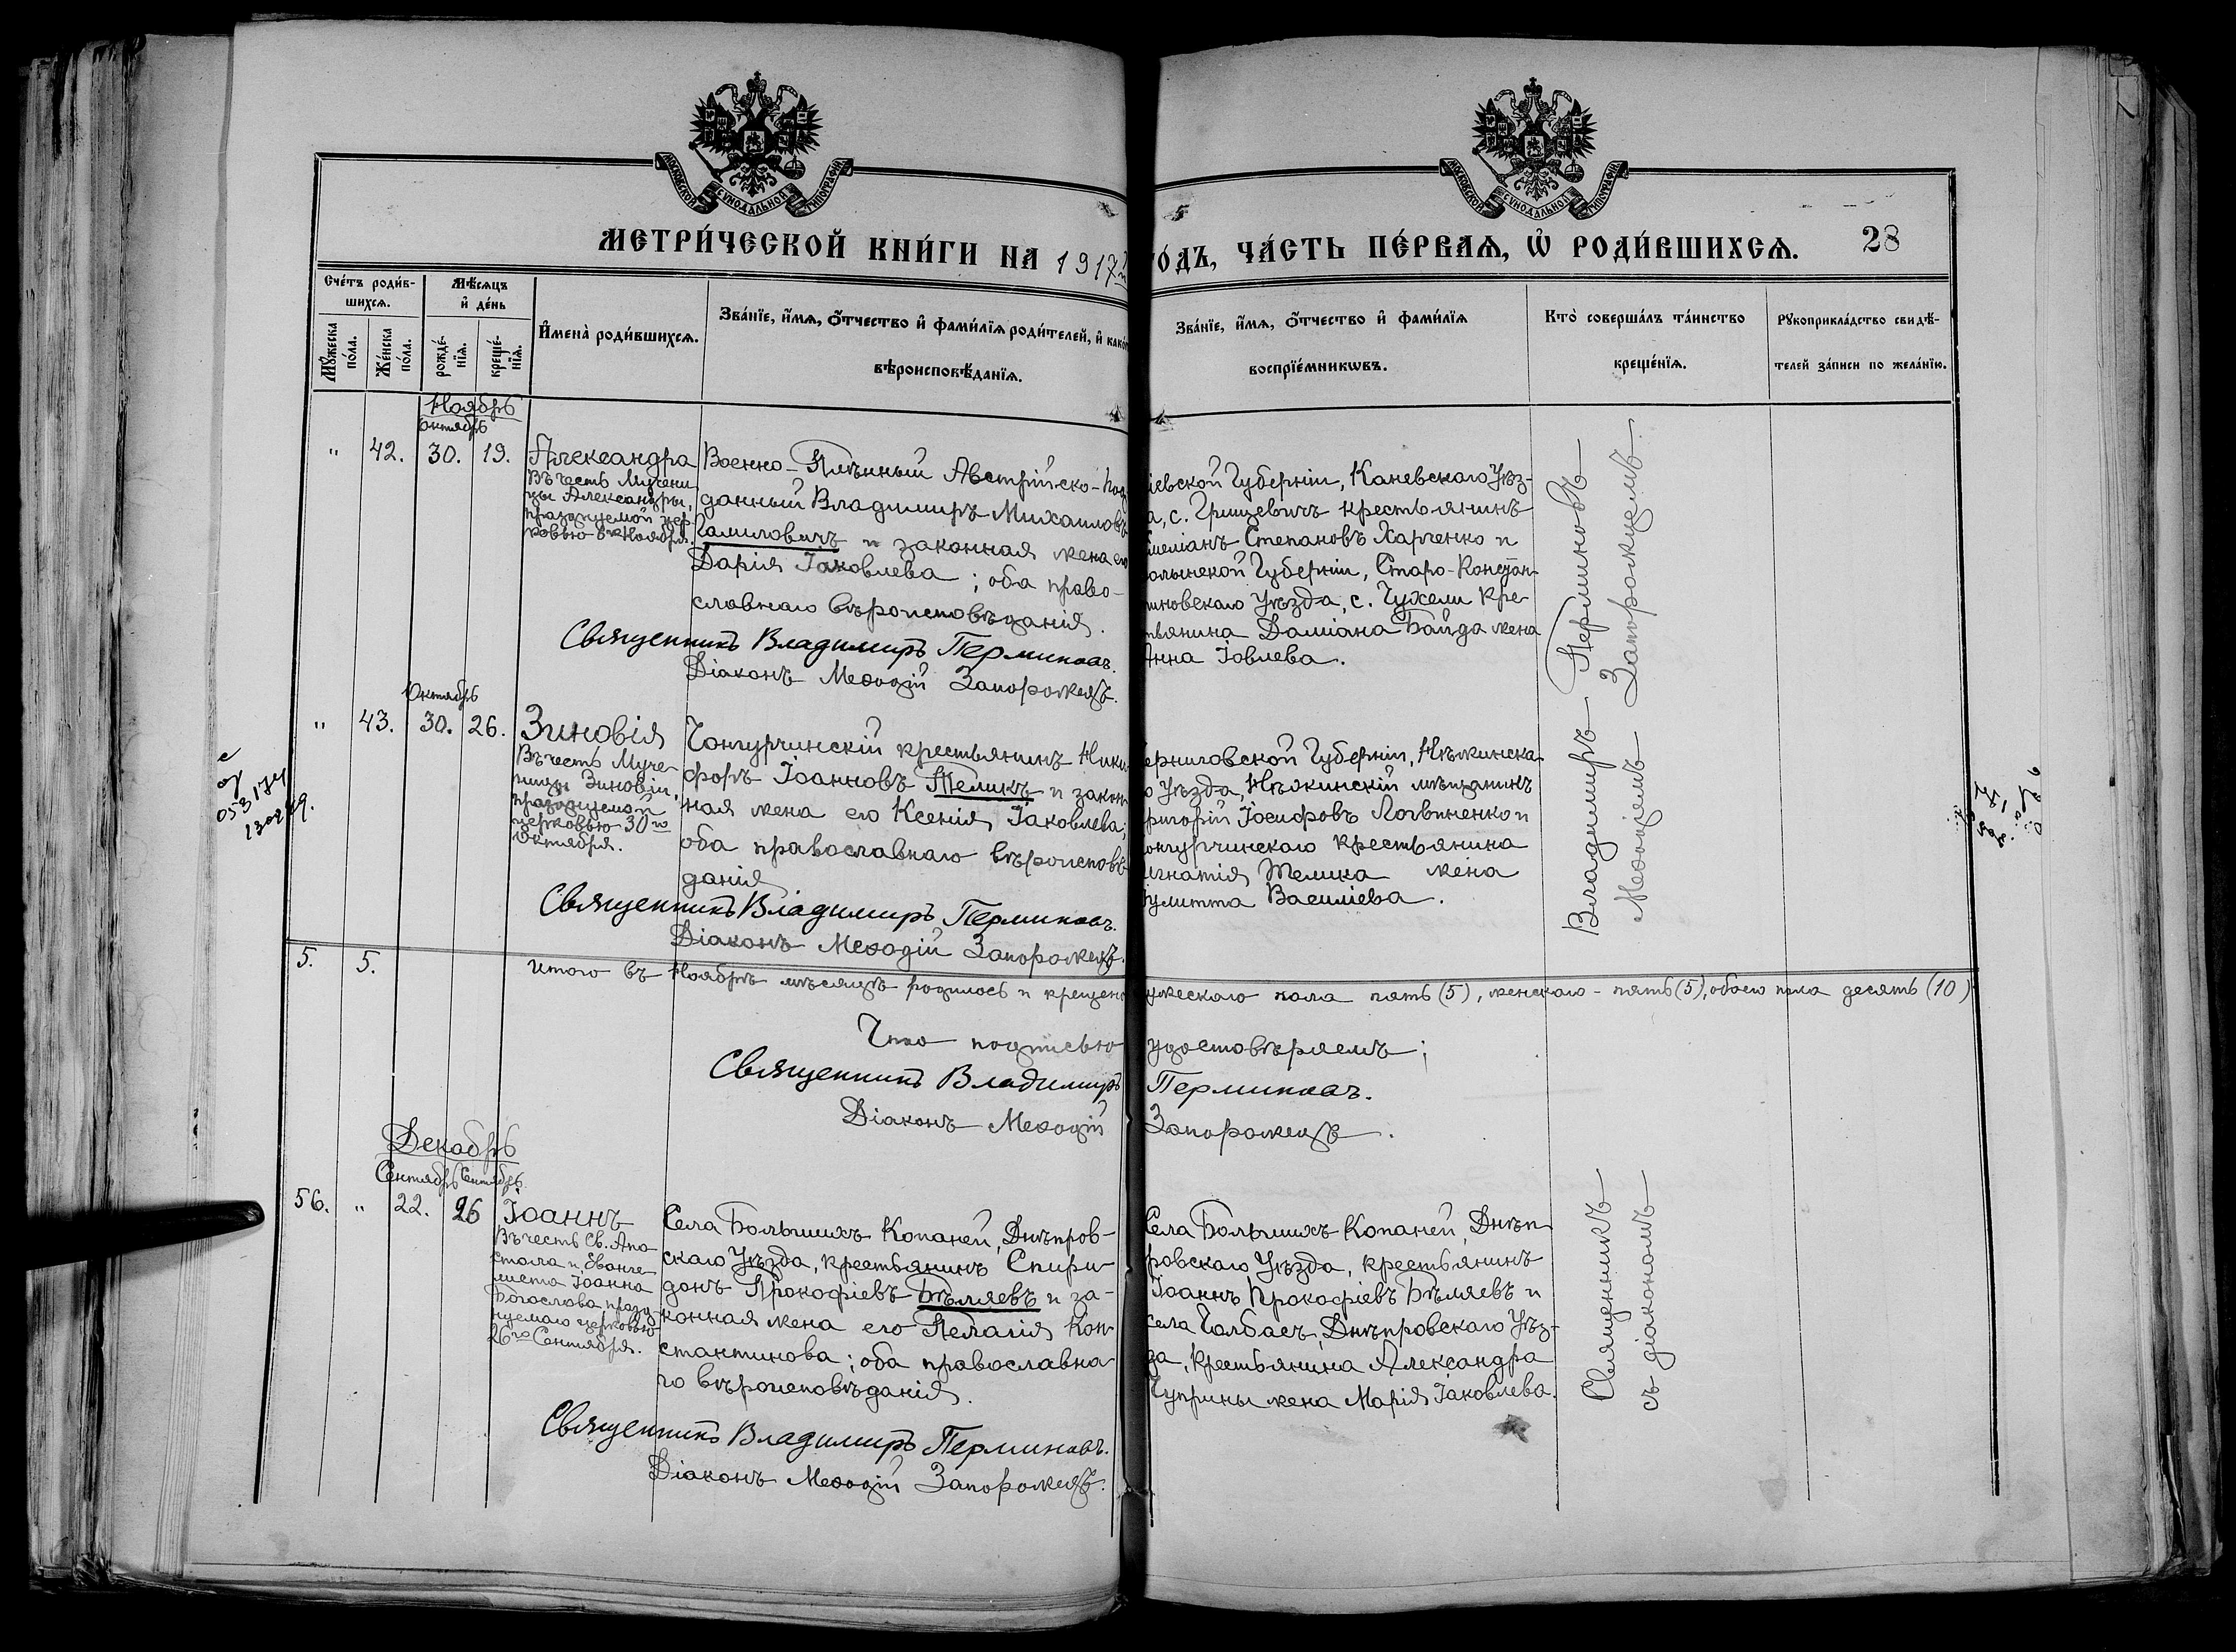 МОСКОВСКОЙ СѴНОДАЛЬНОЙ ТИПОГРАФІИ
МОСКОВСКОЙ СѴНОДАЛЬНОЙ ТИПОГРАФІИ
МЕТРИ́ЧЕСКОЙ КНИ́ГИ НА 1917
ГО́ДЪ, ЧА́СТЬ ПЕ́РВАѦ, Ѽ РОДИ́ВШИХСѦ.
28
Сче́тъ роди́в-
шихсѧ.
Мꙋ́жеска
по́ла.
Же́нска
по́ла.
Мѣ́сѧцъ
и҆ де́нь
рожде́-
нїѧ.
креще́-
нїѧ.
И҆мена̀ роди́вшихсѧ.
Зва́нїе, и҆́мѧ, ѻ҆́тчество и҆ фами́лїѧ роди́телей, и҆ како́
вѣроисповѣ́данїѧ.
Зва́нїе, и҆́мѧ, ѻ҆́тчество и҆ фами́лїѧ
воспрїе́мникѡвъ.
Кто̀ соверша́лъ та́инство
креще́нїѧ.
Рꙋкоприкла́дство свидѣ́-
телей за́писи по жела́нїю.
Ноябрь
Октябрь
" 42. 30. 19.
Александра
Въ честь Мучени
цы Александры,
празднуемой цер-
ковью 6го Ноября.
Военно-Плѣнный Австрійско-под
данный Владимиръ Михаиловъ
Гамиловичъ и законная жена его
Дарія Іаковлева; оба право-
славнаго вѣроисповѣданія.
Священникъ Владимиръ Перминовъ.
Діаконъ Меѳодій Запорожецъ.
іевской Губерніи, Каневскаго Уѣз-
а, с. Грищевичъ крестьянинъ
меліанъ Степановъ Харченко и
олынской Губерніи, Старо-Констан-
тиновскаго Уѣзда, с. Чухели кре-
тьянина Даміана Байда жена
Анна Іовлева.
Октябрь
" 43. 30. 26.
Зиновія
Въ честь Муче-
ницы Зиновіи,
празднуемой
церковью 30го
Октября.
Чонгурчинскій крестьянинъ Ники
форъ Іоанновъ Теликъ и закон
ная жена его Ксенія Іаковлева;
оба православнаго вѣроисповѣ
данія
Священникъ Владимиръ Перминовъ.
Діаконъ Меѳодій Запорожецъ.
ерниговской Губерніи, Нѣжинска-
о Уѣзда, Нѣжинскій мѣщанинъ
ригорій Іосифовъ Логвиненко и
онгурчинскаго крестьянина
Игнатія Телика жена
улитта Василіева.
Владимиръ Перминовъ
Меѳодіемъ Запорожцемъ.
5. 5.
Итого въ Ноябрѣ мѣсяцѣ родилось и крещено
ужескаго пола пять (5), женскаго - пять (5), обоего пола десять (10)
Что подписью удостовѣряемъ;
Священникъ Владимиръ Перминовъ.
Діаконъ Меѳодій Запорожецъ.
Декабрь
Сентябрь Сентябрь
56. " 22. 26
Іоаннъ
Въ честь Св. Апо
стола и Еванге
листа Іоанна
Богослова, празд
нуемаго церковью
26го Сентября.
Села Большихъ Копаней, Днѣпров-
скаго Уѣзда, крестьянинъ Спири-
донъ Прокофіевъ Бѣляевъ и за-
конная жена его Пелагія Кон
стантинова; оба православна-
го вѣроисповѣданія.
Священникъ Владимиръ Перминовъ.
Діаконъ Меѳодій Запорожецъ.
Села Большихъ Копаней, Днѣп
ровскаго Уѣзда, крестьянинъ
Іоаннъ Прокофіевъ Бѣляевъ и
села Чалбасъ, Днѣпровскаго Уѣз-
да, крестьянина Александра
Чуприны жена Марія Іаковлева.
Священникъ
съ діакономъ